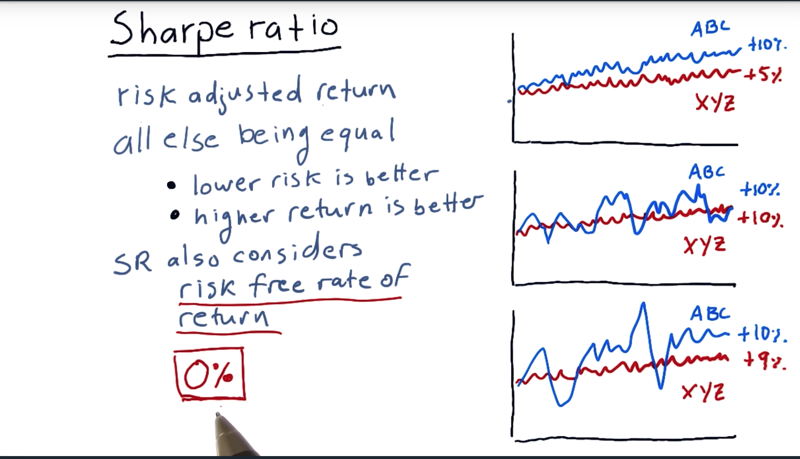 Sharpe ratio
risk adjusted return
all else being equal
• lower risk is better
• higher return is better
SR also considers
risk free rate of
return
0%
ABC
+10%.
+5%
XYZ
ABC
+10%.
+10%.
XYZ
ABC
+10%.
+9%.
XYZ